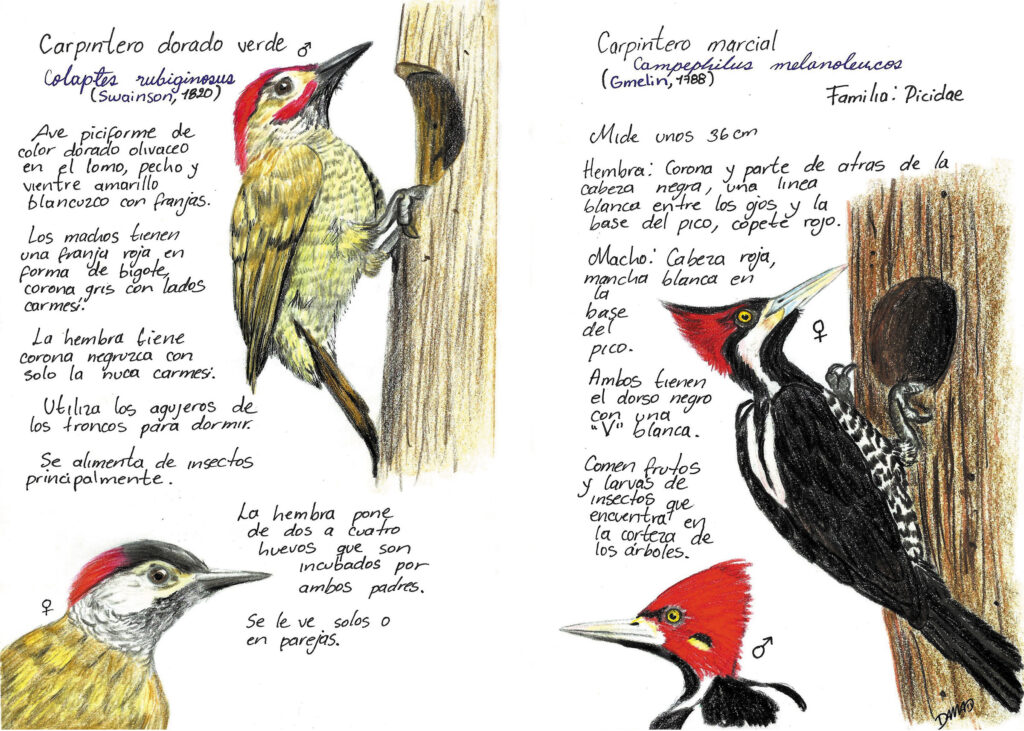 Carpintero dorado verde ♂
Colaptes rubiginosus
(Swainson, 1820)
Ave piciforme de
color dorado olivaceo
en el lomo, pecho y
vientre amarillo
blancuzco con franjas.
Los machos tienen
una franja roja en
forma de bigote,
corona gris con lados
carmesí.
La hembra tiene
corona negruzca con
solo la nuca carmesí.
Utiliza los agujeros de
los troncos para dormir.
Se alimenta de insectos
principalmente.
La hembra pone
de dos a cuatro
huevos que son
incubados por
ambos padres.
Se le ve solos o
en parejas.
♀
Carpintero marcial
Campephilus melanoleucos
(Gmelin, 1788)
Familia: Picidae
Mide unos 36 cm
Hembra: Corona y parte de atras de la
cabeza negra, una linea
blanca entre los ojos y la
base del pico, copete rojo.
Macho: Cabeza roja,
mancha blanca en
la
base
del
pico.
♀
Ambos tienen
el dorso negro
con una
"V" blanca.
Comen frutos
y larvas de
insectos que
encuentra en
la corteza de
los árboles.
♂
DMAD